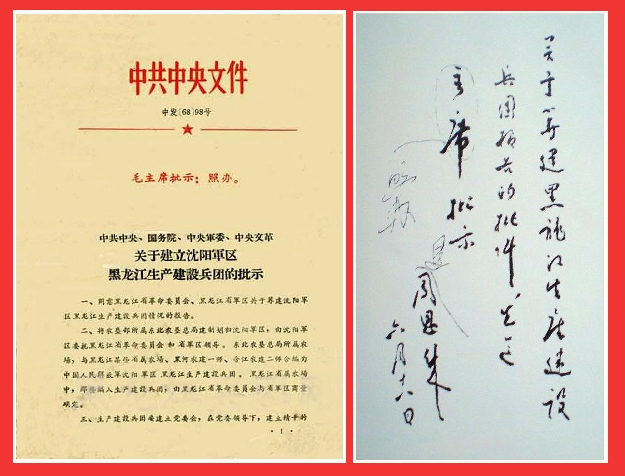 中共中央文件
中发[68]98号
毛主席批示：照办。
中共中央、国务院、中央軍委、中央文革
关于建立沈阳軍区
黑龙江生产建設兵团的批示
一、同意黑龙江省革命委員会、黑龙江省軍区关于筹建沈阳軍
区黑龙江生产建設兵团情况的报告。
二、将农垦部所属东北农垦总局建制划归沈阳軍区，由沈阳軍
区委托黑龙江省革命委員会和省軍区領导。东北农垦总局所属农
場，与黑龙江某些省属农場、黑河农建一师、合江农建二师合編为
中国人民解放軍沈阳軍区黑龙江生产建設兵团。黑龙江省属农場
中，那些編入生产建設兵团，由黑龙江省革命委員会与省軍区商量
确定。
三、生产建設兵团要建立党委会，在党委領导下，建立精干的
· 1 ·
关于筹建黑龙江生产建设
兵团报告的批件，先送
主席批示
周恩来
六月十八日